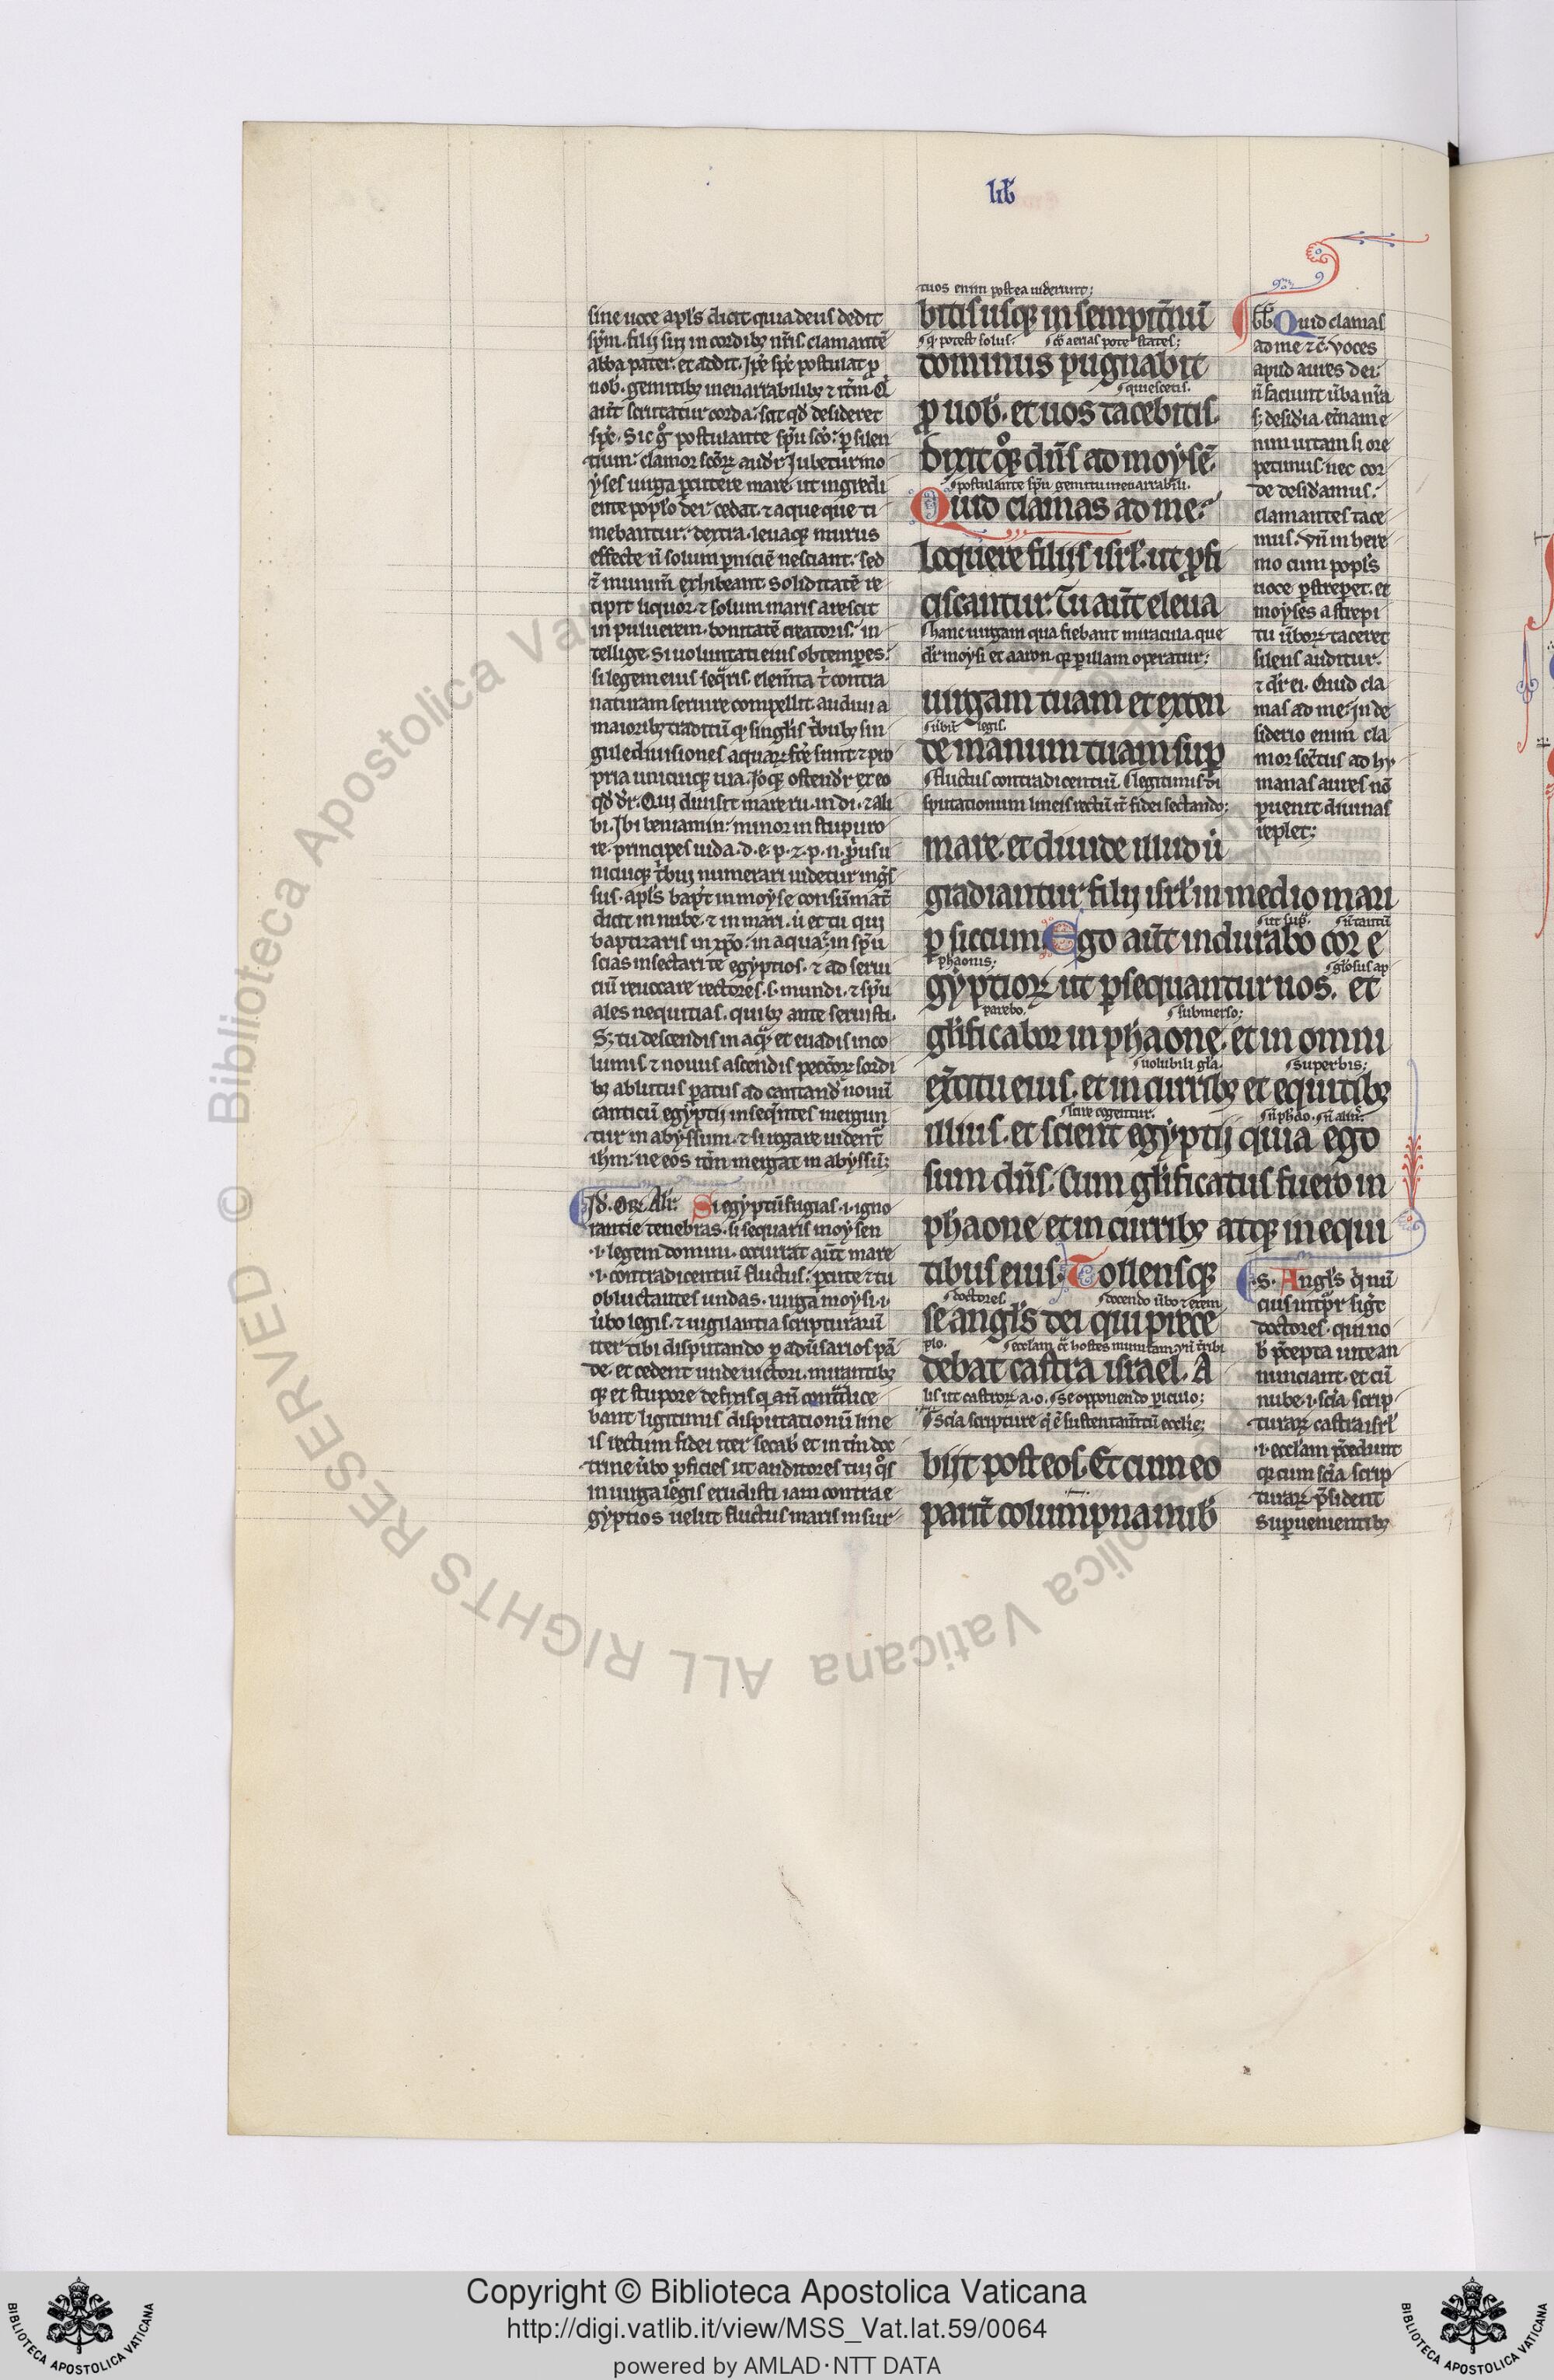 lib̄
sine uoce apl's dicit quia deus dedit
sp̄m filij sui in cordibꝫ nr̄is clamantē
abba pater. et addit. Ip̄e sp̄c postulat ꝓ
uob. gemitibꝫ inenarrabilibꝫ ⁊ itm̄ Q'
aūt scrutatur corda: scit qd' desideret
sp̄c. Sic g° postulante sp̄u sc̄o: ꝑ silen
tium: clamor sc̄oꝝ aud'r Iubetur mo
yses uirga ꝑcutere mare. ut ingredi
ente pop̄lo dei cedat. ⁊ aque que ti
mebantur: dextra. leuaqꝫ murus
effecte n̄ solum ꝑniciē nesciant: sed
⁊ munim̄ exhibeant. Soliditatē re
cipit liquor. ⁊ solum maris arescit
in puluerem. bonitatē creatoris: in
tellige. Si uoluntati eius obtemꝑes:
si legem eius seq̄ris. elem̄ta t̄ contra
naturam seruire compellit. audiui a
maioribꝫ traditū qꝫ singlis t'bubꝫ sin
gule diuisiones aquaꝝ fc̄e sunt ⁊ pro
pria unicuiqꝫ uia. Ioqꝫ ostend'r ex eo
qd' d'r. Qui diuisit mare ru. in di. ⁊ ali
bi. Ibi beniamin: minor in stupuro
re. principes iuda. d. e. p. ⁊ p. n. ꝑ usu
nicuiqꝫ t'bui numerari uidetur ing̃s
sus. apl's bapt' in moyse consūmat̄
dicit in nube. ⁊ in mari. u' et tu qui
baptizaris in xp̄o: in aqua: in sp̄u
scias insectari te egyptios. ⁊ ad serui
ciū reuocare rectores. s. mundi. ⁊ sp̄u
ales nequitias. quibꝫ ante seruisti.
Sꝫ tu descendis in aq̄ꝫ et euadis inco
lumis ⁊ nouus ascendis pecc̄oꝝ sordi
bꝫ ablutus ꝑatus ad cantand' nouū
canticū egyptij inseq̄ntes mergun
tur in abyssum. ⁊ si rogare uident̄
ih̄m: ne eos itm̄ mergat in abyssū;
Id'. OR. Alr'. Si egyptū fugias .i. igno
rantie tenebras. si sequaris moysen
.i. legem domini. occurrat aūt mare
.i. contradicentiū fluctus: ꝑcute ⁊ tu
obluctantes undas. uirga moysi .i.
u'bo legis. ⁊ uigilantia scripturarū
iter tibi disputando ꝑ adu'sarios pā
de. et cedent unde uictori. mirantibꝫ
qꝫ et stupore defixis q an̄
bant ligitimis disputationū line
is rectum fidei iter secab̄. et in tm̄ doc
trine u'bo ꝓficies ut auditores tui qos
in uirga legis erudisti iam contra e
gyptios uelut fluctus maris insur
tuos enim postea uiderunt;
bitis usqꝫ in sempit'nū
qꝫ potest solus. aerias potestates;
dominus pugnabit
quiescetis.
ꝓ uob'. et uos tacebitis.
Dixitqꝫ dn̄s ad moysē.
postulante sp̄u gemitu inenarrabili.
Quid clamas ad me:
Loquere filijs isrl'. ut ꝓfi
ciscantur. Tu aūt eleua
hanc uirgam qua fiebant miracula. que
d'r moysi et aaron. qꝫ ꝑ illam operatur;
uirgam tuam et exten
legis.
de manum tuam suꝑ
fluctus contradicentiū. legitimis di
sputationum lineis rectū it̄ fidei sectando;
mare. et diuide illud u'
gradiantur filij isrl' in medio mari
ut sup̄. n̄ tantū
ꝑ siccum Ego aūt indurabo cor e
ph̄aonis; gl'osus ap
gyptioꝝ ut ꝑsequantur uos. et
parebo. submerso;
gl'ificabor in ph̄aone. et in omni
uolubili gl'a. superbis;
ex̄citu eius. et in curribꝫ et equitibꝫ
scire cogentur. n̄ phao. n̄ alius.
illius. et scient egyptij quia ego
sum dn̄s. cum gl'ificatus fuero in
ph̄aone et in curribꝫ atqꝫ in equi
tibus eius. Tollensqꝫ
doctores. docendo u'bo ⁊ exem
se angl's dei qui prece
plo. eccl'am hostes munitam
debat castra israel. A
lis ut castroꝝ a. o. se opponendo ꝑiculo;
scīa scripture q' ē sustentam̄tū eccl'ie;
bijt post eos. Et cum eo
parit' columpna nub'
Quid clamas
ad me ⁊ c̄. voces
apud aures dei:
n̄ faciunt u'ba nr̄a
sꝫ desid'ia. et'nam e
nim uitam si ore
petimus. nec cor
de desid'amus:
clamantes tace
mus. Vn̄ in here
mo cum popl's
uoce ꝑstreperet. et
moyses a strepi
tu u'boꝝ taceret
silens auditur.
⁊ d'r ei. Quid cla
mas ad me: In de
siderio enim cla
mor sec̄tus ad hu
manas aures nō
ꝑuenit. diuinas
replet;
.S. Angl's q' nū
cius int'pr̄. sig̃t
doctores. qui no
b' p̄cepta uite an
nunciant. et cū
nube .i. scīa scrip
turaꝝ castra isrl'
.i. eccl'am p̄cedunt
qꝫ cum scīa scrip
turaꝝ p̄sident
superuenientibꝫ
© Biblioteca Apostolica Vaticana ALL RIGHTS RESERVED
Copyright © Biblioteca Apostolica Vaticana
http://digi.vatlib.it/view/MSS_Vat.lat.59/0064
powered by AMLAD·NTT DATA
BIBLIOTECA APOSTOLICA VATICANA
BIBLIOTECA APOSTOLICA VATICANA